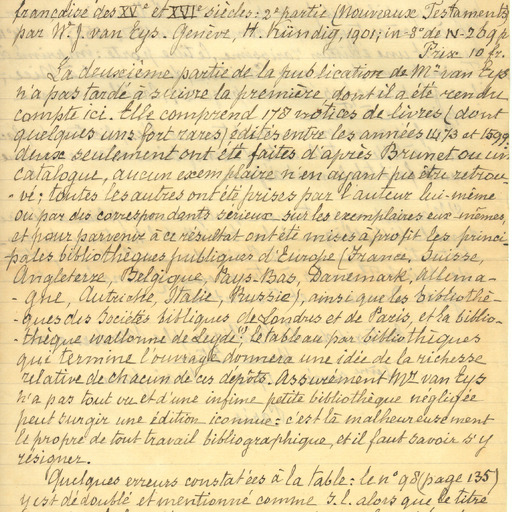 française des XVe et XVIe siècles: 2e partie (Nouveaux Testaments)
par W. J. van Eys. Genève, H. Kündig, 1901; in-8° de IV-269 p
Prix 10 fr.
La deuxième partie de la publication de Mr van Eys
n'a pas tardé à suivre la première, dont il a été rendu
compte ici. Elle comprend 178 notices de livres (dont
quelques uns fort rares) édités entre les années 1473 et 1599
deux seulement ont été faites d'après Brunet ou un
catalogue, aucun exemplaire n'en ayant pu être retrou-
-vé; toutes les autres ont été prises par l'auteur lui-même
ou par des correspondants sérieux sur les exemplaires eux-mêmes,
et pour parvenir à ce résultat ont été mises à profit les princi-
pales bibliothèques publiques d'Europe (France, Suisse,
Angleterre, Belgique, Pays-Bas, Danemark, Allema-
-gne, Autriche, Italie, Russie), ainsi que les bibliothè-
-ques des Sociétés bibliques de Londres et de Paris, et la biblio-
-thèque wallonne de Leyde; le tableau par bibliothèques
qui termine l'ouvrage donnera une idée de la richesse
relative de chacun de ces dépôts. Assurément Mr van Eys
n'a pas tout vu et d'une infime petite bibliothèque négligée
peut surgir une édition iconnue: c'est là malheureusement
le propre de tout travail bibliographique, et il faut savoir s'y
résigner.
Quelques erreurs constatées à la table: le n° 98 (page 135)
y est dédoublé et mentionné comme s.l. alors que le titre